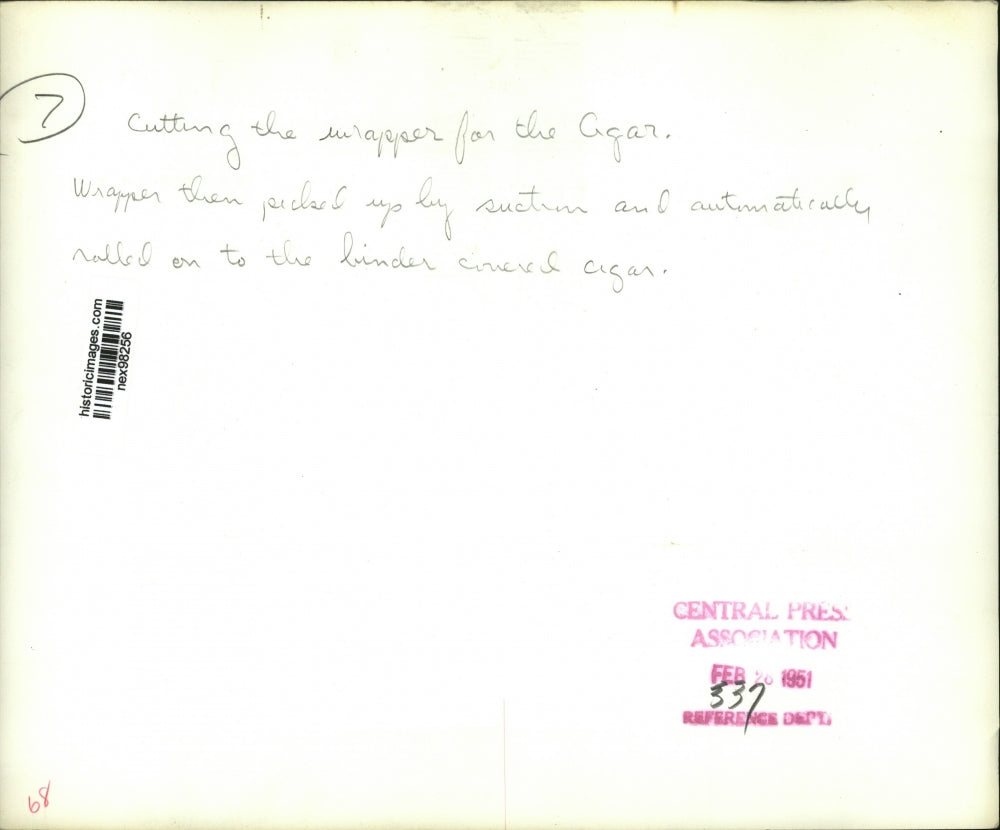 7
Cutting the wrapper for the Cigar.
Wrapper then picked up by suction and automatically
rolled on to the binder covered cigar.
historicimages.com
nex98256
CENTRAL PRESS
ASSOCIATION
FEB 26 1951
337
REFERENCE DEPT.
68